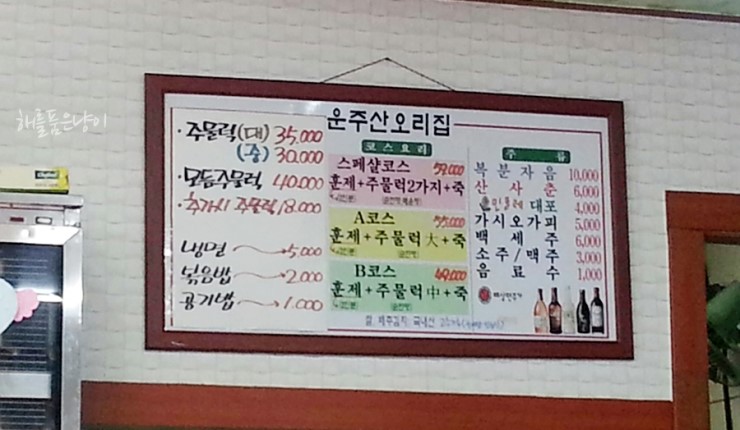 해를품은냥이
운주산오리집
· 주물럭(대) 35.000
(중) 30.000
· 모듬주물럭 40.000
· 추가시 주물럭 18.000
냉면 → 5,000
볶음밥 → 2.000
공기밥 → 1.000
코스요리
스페샬코스
훈제+주물럭2가지+죽
A코스
훈제+주물럭大+죽
B코스 49,000
훈제+주물럭中+죽
주류
복분자음 10,000
산사춘 6,000
대포 4,000
가시오가피 5,000
백세주 6,000
소주/맥주 3,000
음료수 1,000
국내산